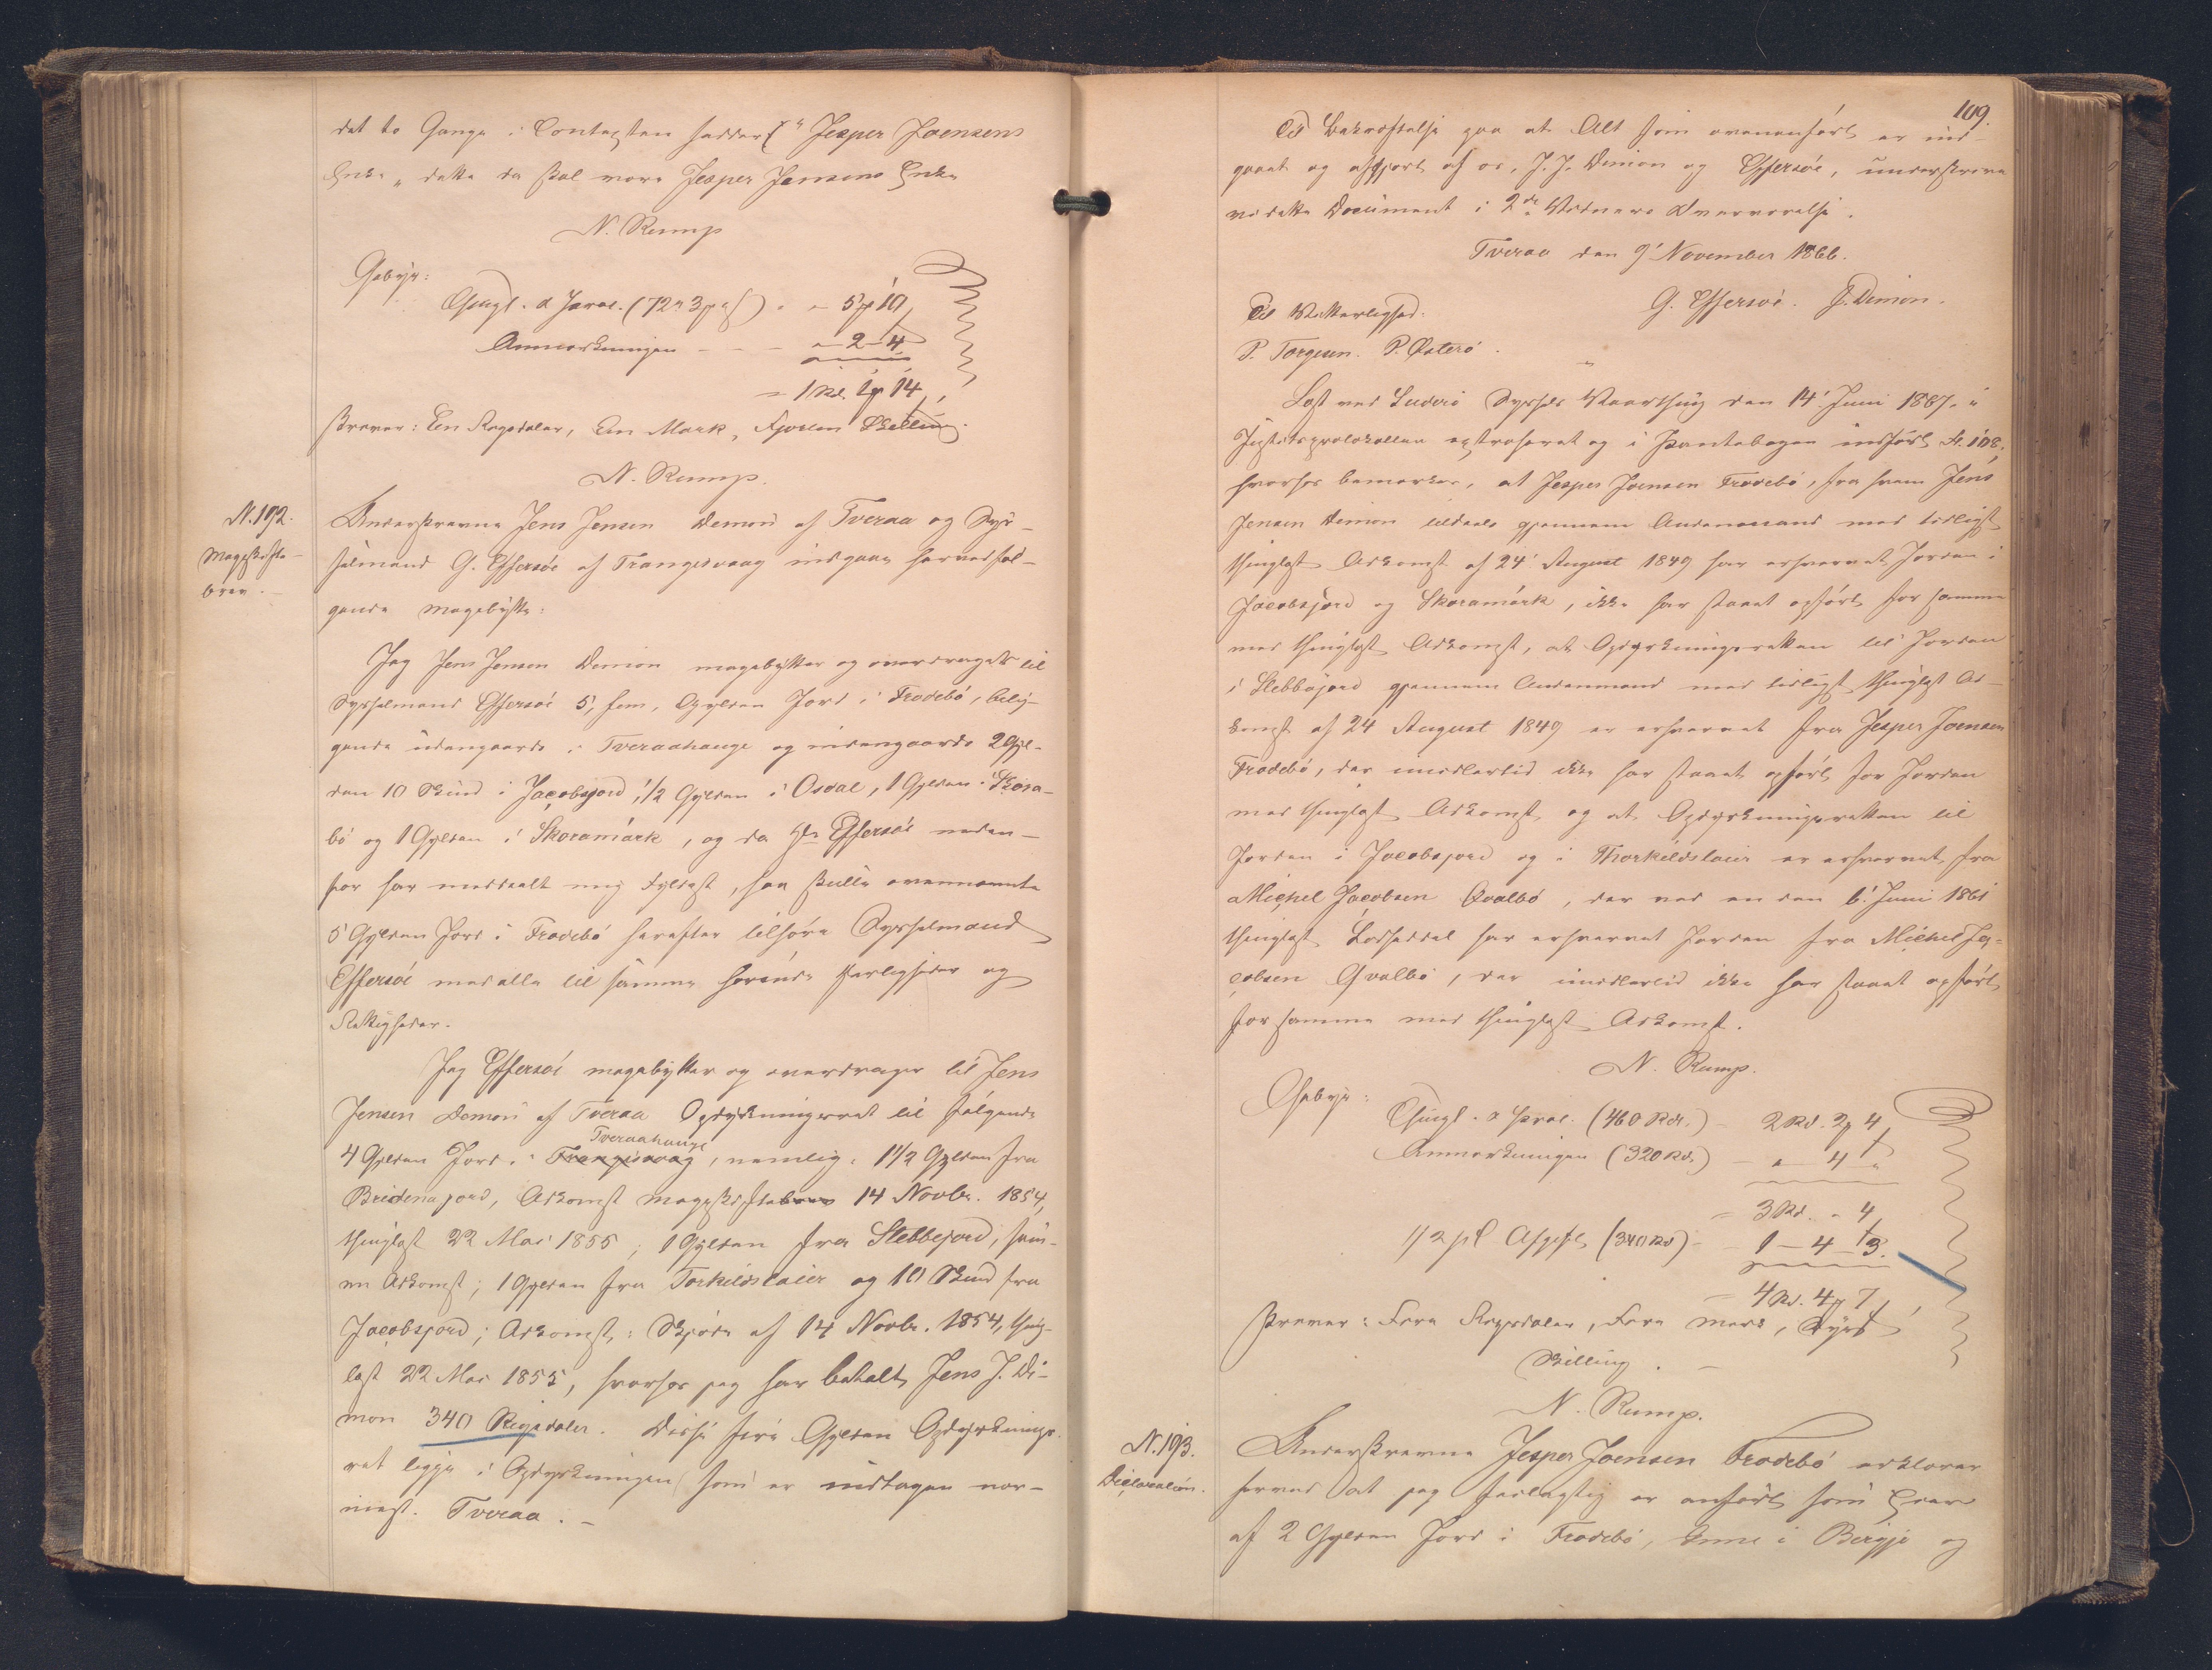 det to Gange i Contexten hedder "Jesper Joensens
Enke" dette da skal være Jesper Jensens Enke
N. Rump
Gebyr:
Thingl. a Prot. (72 rd 3 mk) - 5 mk 10
Anmærkningen - - - 2 - 4
= 1 Rd. 1 mk 14
skriver: Een Rigsdaler, Een Mark, Fjorten Skilling.
N. Rump.
N. 192.
Mageskifte-
brev.
Underskrevne Jens Jensen Demon af Tveraa og Sys-
selmand G. Effersöe af Trangisvaag indgaar herved föl-
gende Magebytte:
Jeg Jens Jensen Demon magebytter og overdrager til
Sysselmand Effersöe 5, fem, Gylden Jord i Frodebö, belig-
gende udengaards i Tveraahauge og indengaards 2 Gyl-
den 10 Skind i Jacobsjord, 1/2 Gylden i Osdal, 1 Gylden i Skora-
bö og 1 Gylden i Skoramärk, og da Hr. Effersöe neden-
for har meddeelt mig Fyldest, saa skulle ovennævnte
5 Gylden Jord i Frodebö herefter tilhöre Sysselmand
Effersöe med alle til samme hörende Herligheder og
Rettigheder.
Jeg Effersöe magebytter og overdrager til Jens
Jensen Demon af Tveraa Opdyrkningsret til fölgende
Tveraahauge
4 Gylden Jord i Trangisvaag, nemlig: 1 1/2 Gylden fra
Breidenajord, Adkomst Mageskiftebrev 14 Novbr. 1854,
thinglæst 22 Mai 1855; 1 Gylden fra Stebbejord, sam-
me Adkomst; 1 Gylden fra Torkildslaier og 10 Skind fra
Jacobsjord; Adkomst: Skjöde af 14 Novbr. 1854, thing-
læst 22 Mai 1855, hvorfor jeg har betalt Jens J. Di-
mon 340 Rigsdaler. Disse fire Gylden Opdyrknings-
ret ligge i Opdyrkningen som er indtagen nær-
mest Tveraa. -
109.
Til Bekræftelse paa at Alt som ovenanfört er ind-
gaaet og afgjort af os, J. J. Demon og Effersöe, underskrive
vi dette Document i 2de Vidners Overværelse.
Tveraa den 9' November 1866.
G. Effersöe. J. Demon.
Til Vitterlighed:
P. Torgesen. P. Österö.
Læst ved Suderö Syssels Vaarthing den 14' Juni 1867, i
Justitsprotokollen extraheret og i Pantebogen indfört Fol. 108,
hvorhos bemærkes, at Jesper Joensen Frodebö, fra hvem Jens
Jensen Demon tildeels gjennem Andenmand med tidligst
thinglæst Adkomst af 24' August 1849 har erhvervet Jorden i
Jacobsjord og Skoramärk, ikke har staaet opfört for samme
med thinglæst Adkomst, at Opdyrkningsretten til Jorden
i Stebbajord gjennem Andenmand med tidligst thinglæst Ad-
komst af 24 August 1849 er erhvervet fra Jesper Joensen
Frodebö, der imidlertid ikke har staaet opfört for Jorden
med thinglæst Adkomst og at Opdyrkningsretten til
Jorden i Jacobsjord og i Thorkildslaier er erhvervet fra
Michel Jacobsen Qvalbö, der ved en den 6' Juni 1861
thinglæst Lodseddel har erhvervet Jorden fra Michel Ja-
cobsen Qvalbö, der imidlertid ikke har staaet opfört
for samme med thinglæst Adkomst.
N. Rump.
Gebyr:
Thingl. a Prot. (460 Rdl.) - 2 Rd. 2 mk 4
Anmærkningen (320 Rd.) - " 4 "
= 3 Rd. " 4
1/2 pCt Afgift (340 Rd) - 1 - 4 - 3.
= 4 Rd. 4 mk 7
skriver: Fire Rigsdaler, Fire Mark, Syv
Skilling. -
N. Rump.
N. 193.
Declaration.
Underskrevne Jesper Joensen Frodebö erklærer
herved at jeg feilagtig er anfört som Eier
af 2 Gylden Jord i Frodebö, Inni i Bergje og